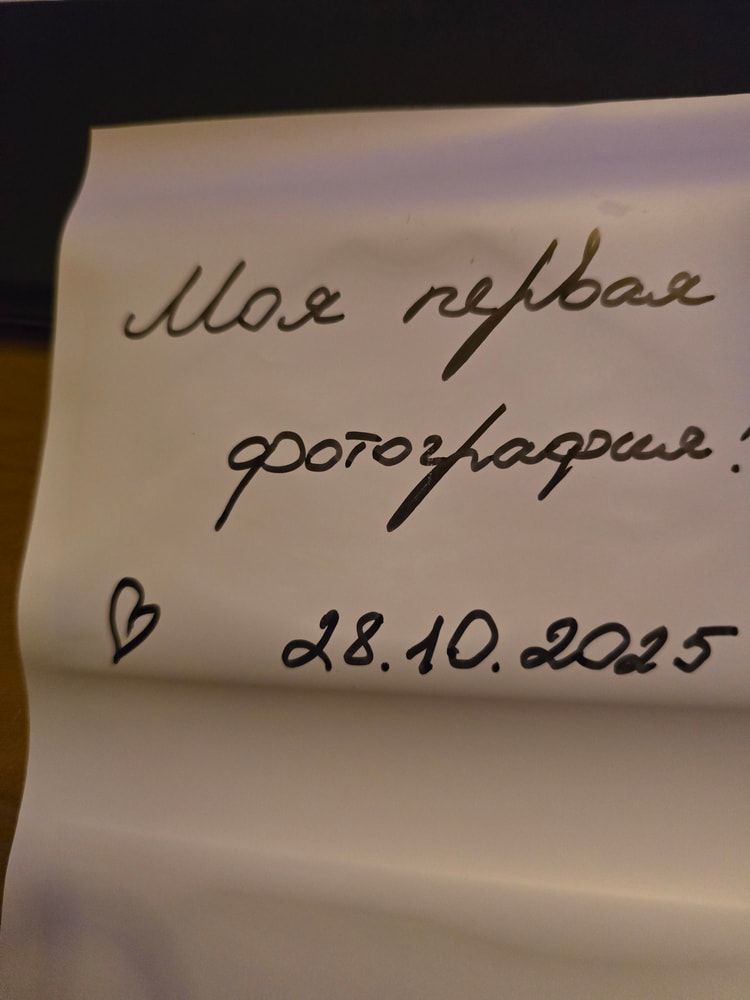 Моя первая
фотография!
♡ 28.10.2025